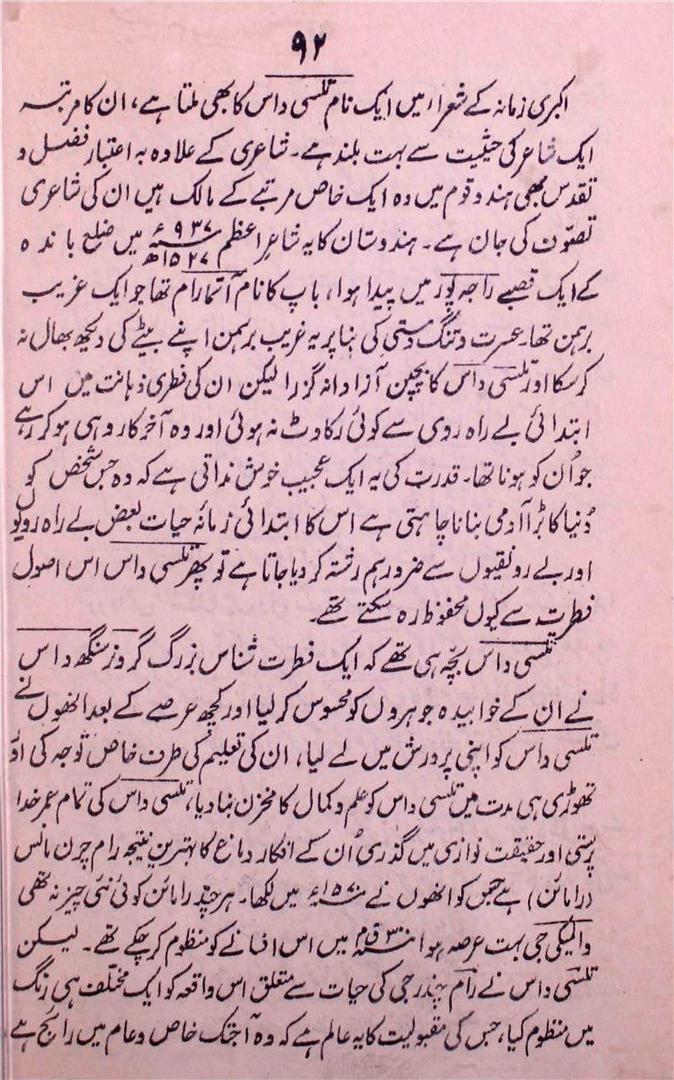 ۹۲
اکبری زمانہ کے شعراء میں ایک نام تلسی داس کا بھی ملتا ہے، ان کا مرتبہ
ایک شاعر کی حیثیت سے بہت بلند ہے۔ شاعری کے علاوہ بہ اعتبار فضل و
تقدس بھی ہندو قوم میں وہ ایک خاص مرتبے کے مالک ہیں ان کی شاعری
تصوّف کی جان ہے۔ ہندوستان کا یہ شاعرِ اعظم ۹۳۷ء ۱۵۲۷ھ میں ضلع باندہ
کے ایک قصبے راجہ پور میں پیدا ہوا، باپ کا نام آتما رام تھا جو ایک غریب
برہمن تھا۔ عسرت و تنگ دستی کی بنا پر یہ غریب برہمن اپنے بیٹے کی دیکھ بھال نہ
کر سکا اور تلسی داس کا بچپن آزادانہ گزرا لیکن ان کی فطری ذہانت میں اس
ابتدائی بے راہ روی سے کوئی رکاوٹ نہ ہوئی اور وہ آخر کار وہی ہو کر رہے
جو اُن کو ہونا تھا۔ قدرت کی یہ ایک عجیب خوش مذاقی ہے کہ وہ جس شخص کو
دُنیا کا بڑا آدمی بنانا چاہتی ہے اس کا ابتدائی زمانۂ حیات بعض بے راہ رویوں
اور بے رونقیوں سے ضرور ہم رشتہ کر دیا جاتا ہے تو پھر تلسی داس اس اصول
فطرت سے کیوں محفوظ رہ سکتے تھے۔
تلسی داس بچّہ ہی تھے کہ ایک فطرت شناس بزرگ گرو نرسنگھ داس
نے ان کے خوابیدہ جوہروں کو محسوس کر لیا اور کچھ عرصے کے بعد انھوں نے
تلسی داس کو اپنی پرورش میں لے لیا، ان کی تعلیم کی طرف خاص توجہ کی اور
تھوڑی ہی مدت میں تلسی داس کو علم و کمال کا مخزن بنا دیا، تلسی داس کی تمام عمر خدا
پرستی اور حقیقت نوازی میں گذری اُن کے افکار دماغ کا بہترین نتیجہ رام چرن مانس
(رامائن) ہے جس کو انھوں نے ۱۵۷۰ء میں لکھا۔ ہر چند رامائن کوئی نئی چیز نہ تھی
والمیکی جی بہت عرصہ ہوا ۳۰۰ ق م میں اس افسانے کو منظوم کر چکے تھے۔ لیکن
تلسی داس نے رام چندر جی کی حیات سے متعلق اس واقعہ کو ایک مختلف ہی رنگ
میں منظوم کیا، جس کی مقبولیت کا یہ عالم ہے کہ وہ آجتک خاص و عام میں رائج ہے